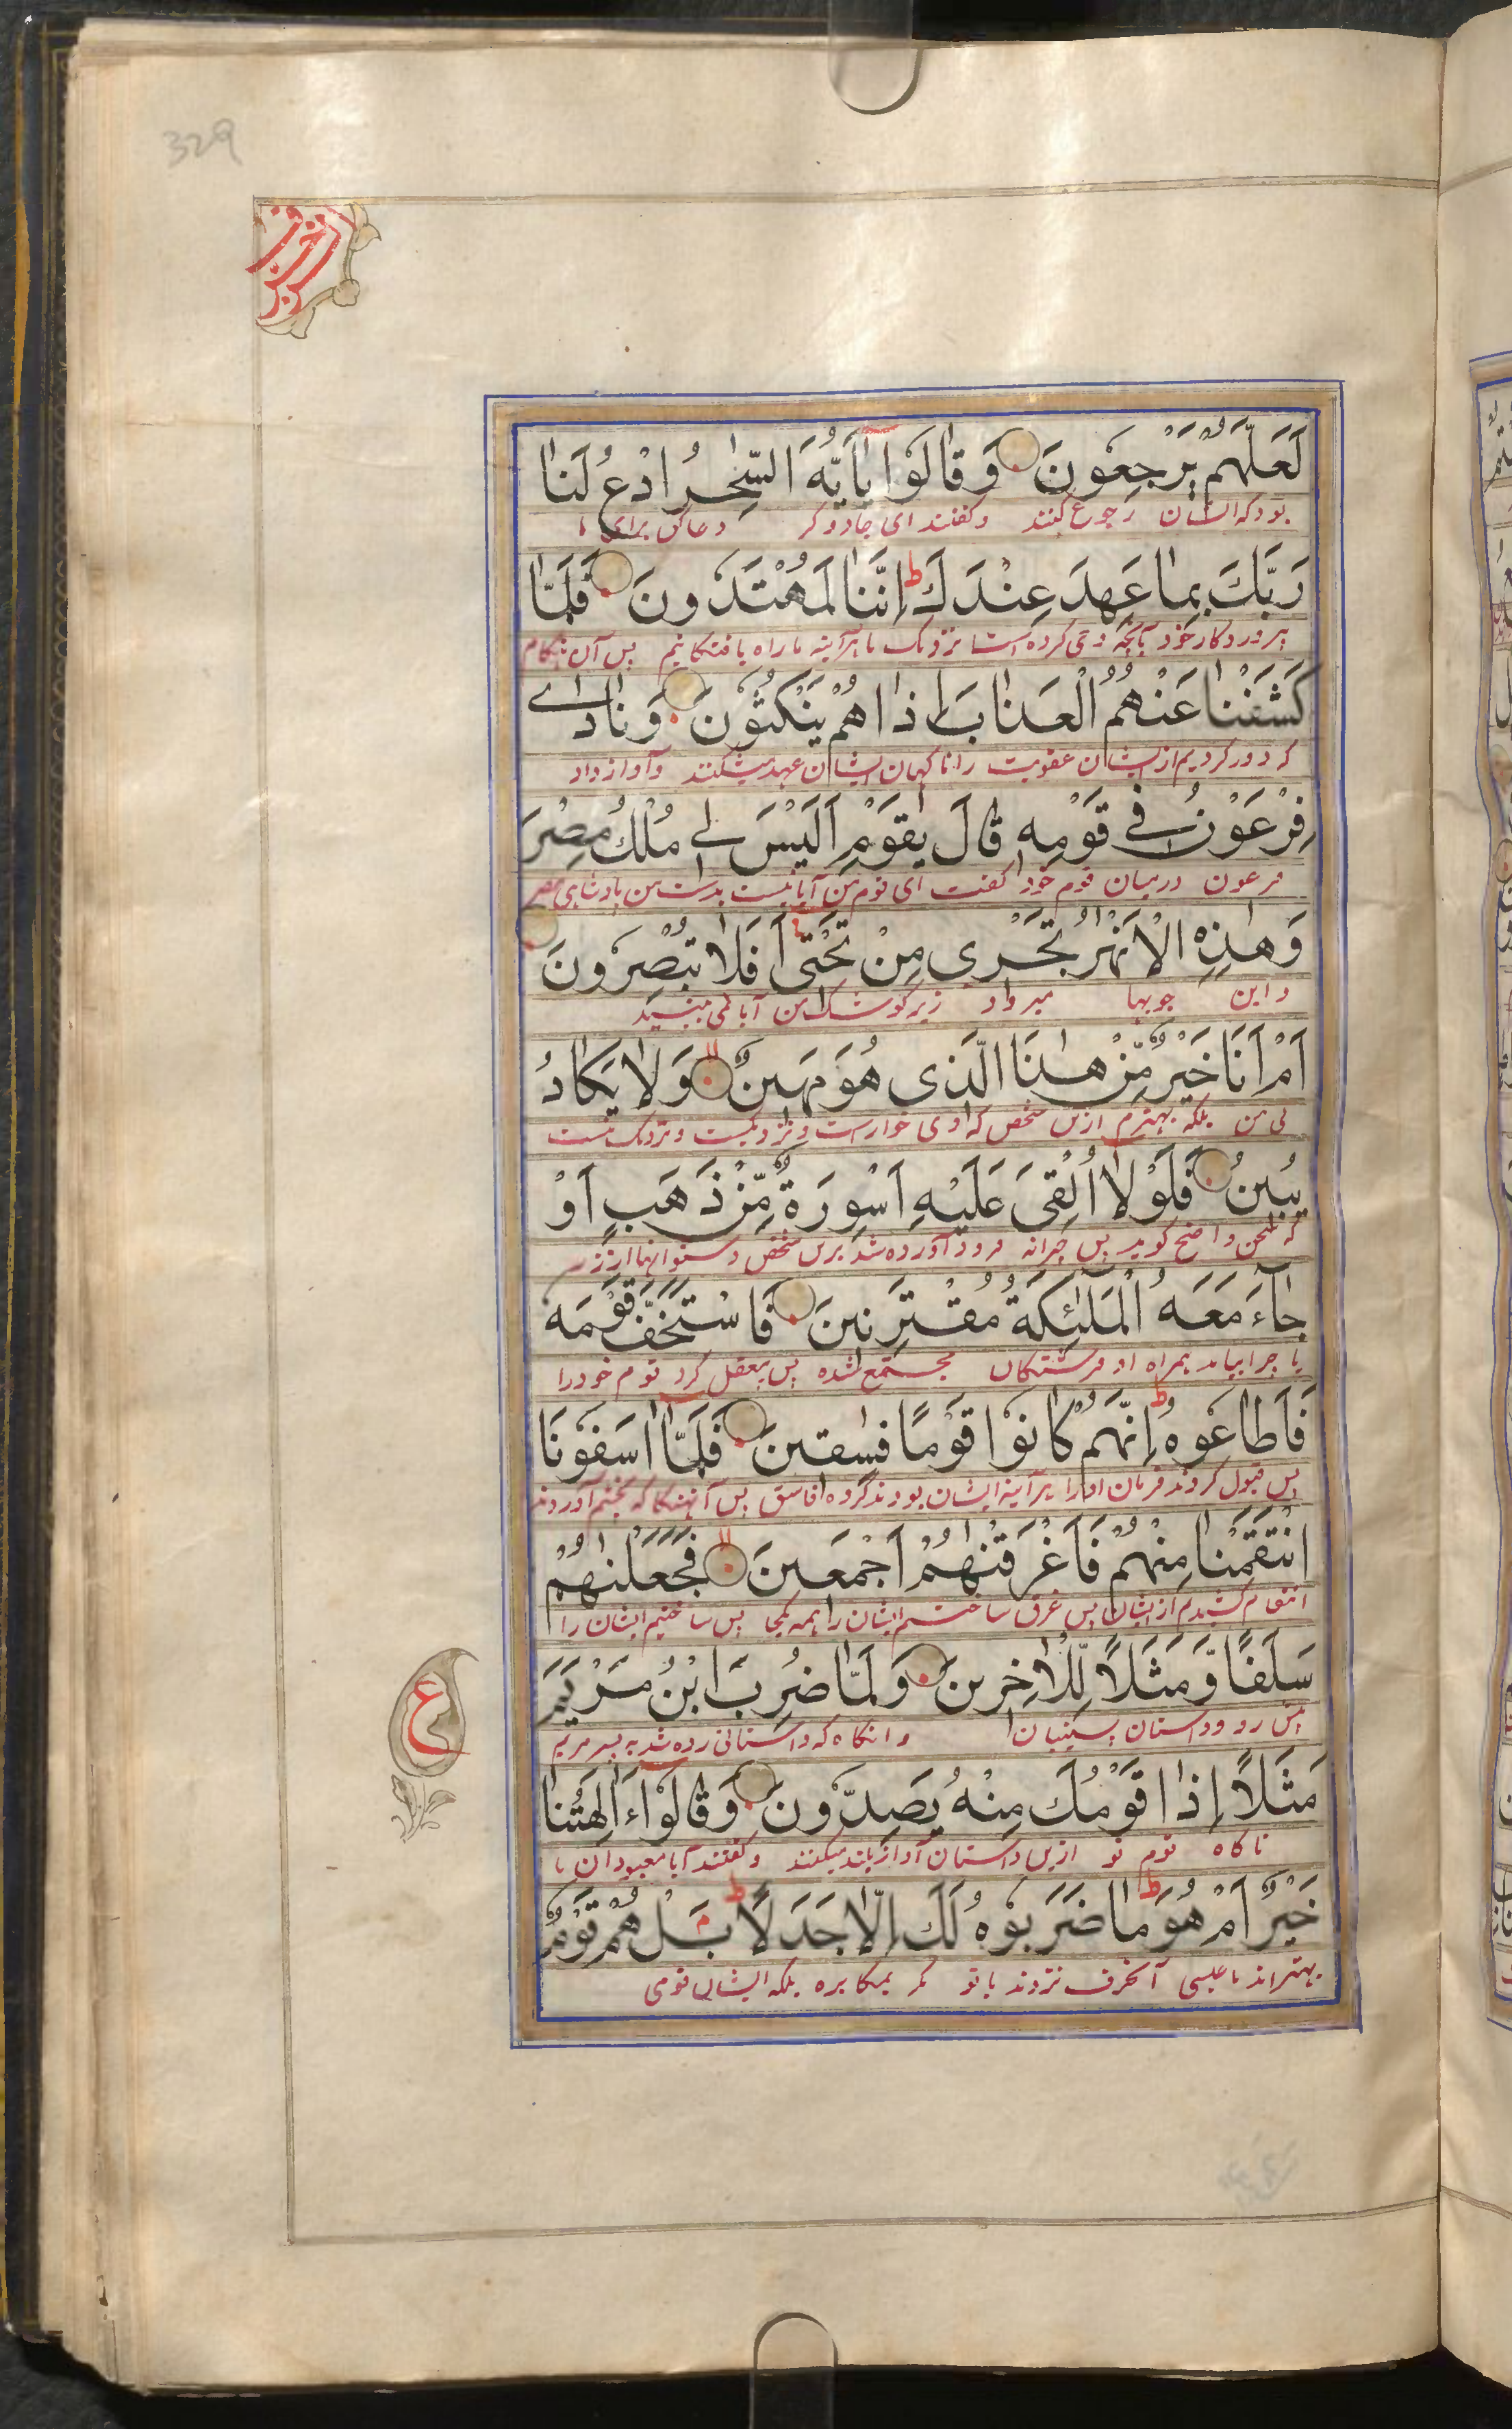 329
الزخرف
لَعَلَّهُمْ يَرْجِعُونَ وَقَالُوا يٰۤاَيُّهَ السّٰحِرُ ادْعُ لَنَا
بود که ایشان رجوع کنند وگفتند ای جادوگر دعا کن برای ما
رَبَّكَ بِمَا عَهِدَ عِنْدَكَ ط اِنَّنَا لَمُهْتَدُونَ فَلَمَّا
بپروردکار خود بآنچه وحی کرده است نزدیک ما هرآینه ما راه یافتکانیم پس آن هنکام
كَشَفْنَا عَنْهُمُ الْعَذَابَ اِذَا هُمْ يَنْكُثُونَ وَنَادٰے
که دور کردیم از ایشان عقوبت را ناکهان ایشان عهد میشکنند وآواز داد
فِرْعَوْنُ فِے قَوْمِهٖ قَالَ يٰقَوْمِ اَلَيْسَ لِے مُلْكُ مِصْرَ
فرعون درمیان قوم خود گفت ای قوم من آیا نیست بدست من بادشاهی مصر
وَهٰذِهِ الْاَنْهٰرُ تَجْرِى مِنْ تَحْتِى اَفَلَا تُبْصِرُونَ
واین جویها میرود زیر کوشک من آیا نمی بینید
اَمْ اَنَا خَيْرٌ مِّنْ هٰذَا الَّذِى هُوَ مَهِينٌ وَّلَا يَكَادُ
بلکه بهترم ازین شخص که وی خوارست و نزدیک نیست
يُبِينُ فَلَوْلَا اُلْقِىَ عَلَيْهِ اَسْوِرَةٌ مِّنْ ذَهَبٍ اَوْ
که سخن واضح گوید پس چرانه فرود آورده شد برین شخص دستوانها از زر
جَآءَ مَعَهُ الْمَلٰٓئِكَةُ مُقْتَرِنِينَ فَاسْتَخَفَّ قَوْمَهٗ
یا چرا بیامد همراه او فرشتکان مجتمع شده پس بیعقل کرد قوم خود را
فَاَطَاعُوهُ ط اِنَّهُمْ كَانُوا قَوْمًا فٰسِقِينَ فَلَمَّا اٰسَفُونَا
پس قبول کردند فرمان او را هرآینه ایشان بودند گروه فاسق پس آنهنکام که بخشم آوردند
انْتَقَمْنَا مِنْهُمْ فَاَغْرَقْنٰهُمْ اَجْمَعِينَ فَجَعَلْنٰهُمْ
انتقام کشیدیم از ایشان پس غرق ساختیم ایشان را همه یکجا پس ساختیم ایشان را
سَلَفًا وَّمَثَلًا لِّلْاٰخِرِينَ وَلَمَّا ضُرِبَ ابْنُ مَرْيَمَ
پیش رو وداستان پسینیان وانکاه که داستانی زده شد به پسر مریم
ع
مَثَلًا اِذَا قَوْمُكَ مِنْهُ يَصِدُّونَ وَقَالُوا ءَاٰلِهَتُنَا
ناکاه قوم تو ازین داستان آواز بلند میکنند وگفتند آیا معبودان ما
خَيْرٌ اَمْ هُوَ ط مَا ضَرَبُوهُ لَكَ اِلَّا جَدَلًا ط بَلْ هُمْ قَوْمٌ
بهتراند یا عیسی آنحرف نزدند باتو مگر بمکابره بلکه ایشان قومی